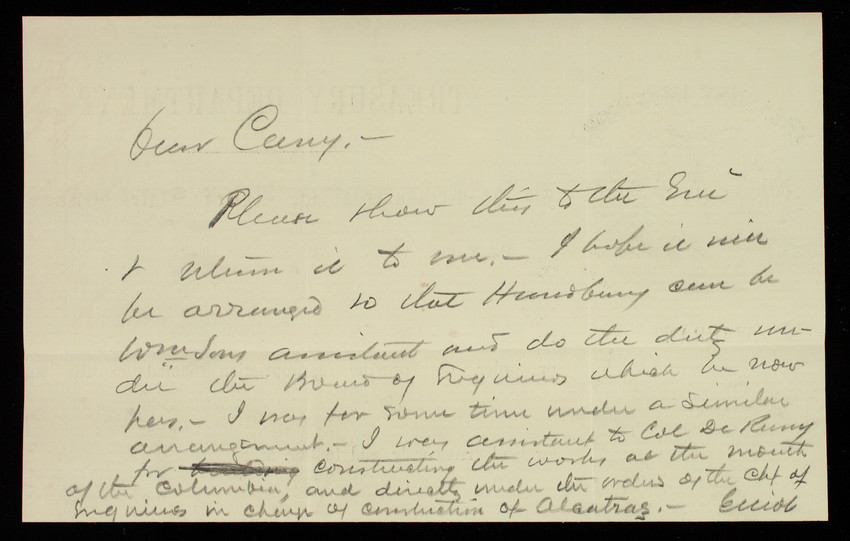 TREASURY DEPARTMENT
Dear Casey, –
Please show this to the Gen'l
& return it to me. – I hope it will
be arranged so that Handbury can be
Wmson's assistant and do the duty un-
der the Board of Engineers which he now
has. – I was for some time under a similar
arrangement. – I was assistant to Col De Russy
for constructing the works at the mouth
of the Columbia, and directly under the orders of the Chf of
Engineers in charge of construction of Alcatraz. – Elliot